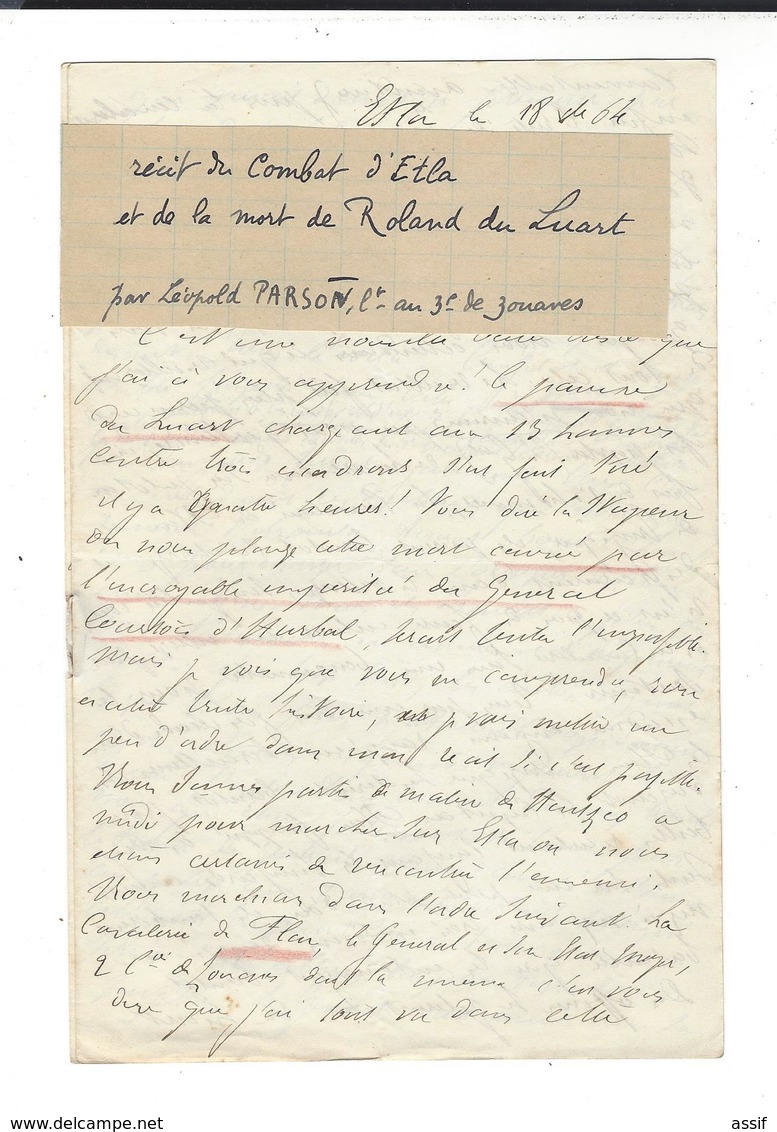 Etla le 18 Xbre 64
récit du Combat d'Etla
et de la mort de Roland du Luart
par Léopold PARSON, lt au 3e de zouaves
C'est une nouvelle bien triste que
j'ai à vous apprendre! le pauvre
du Luart chargeant avec 13 hommes
contre trois escadrons s'est fait tué
il y a quatre heures! Vous dire la stupeur
où nous plonge cette mort causée par
l'incroyable impéritie du General
Courtois d'Hurbal, serait tenter l'impossible.
Mais je vois que vous ne comprendrez rien
à cette triste histoire, je vais mettre un
peu d'ordre dans mon récit si c'est possible.
Nous sommes partis ce matin de à
midi pour marcher sur Etla où nous
étions certains de rencontrer l'ennemi.
Nous marchions dans l'ordre suivant. La
Cavalerie de Flon, le General et son Etat Major,
2 Cies de Zouaves dont la mienne c'est vous
dire que j'ai tout vu dans cette
assif